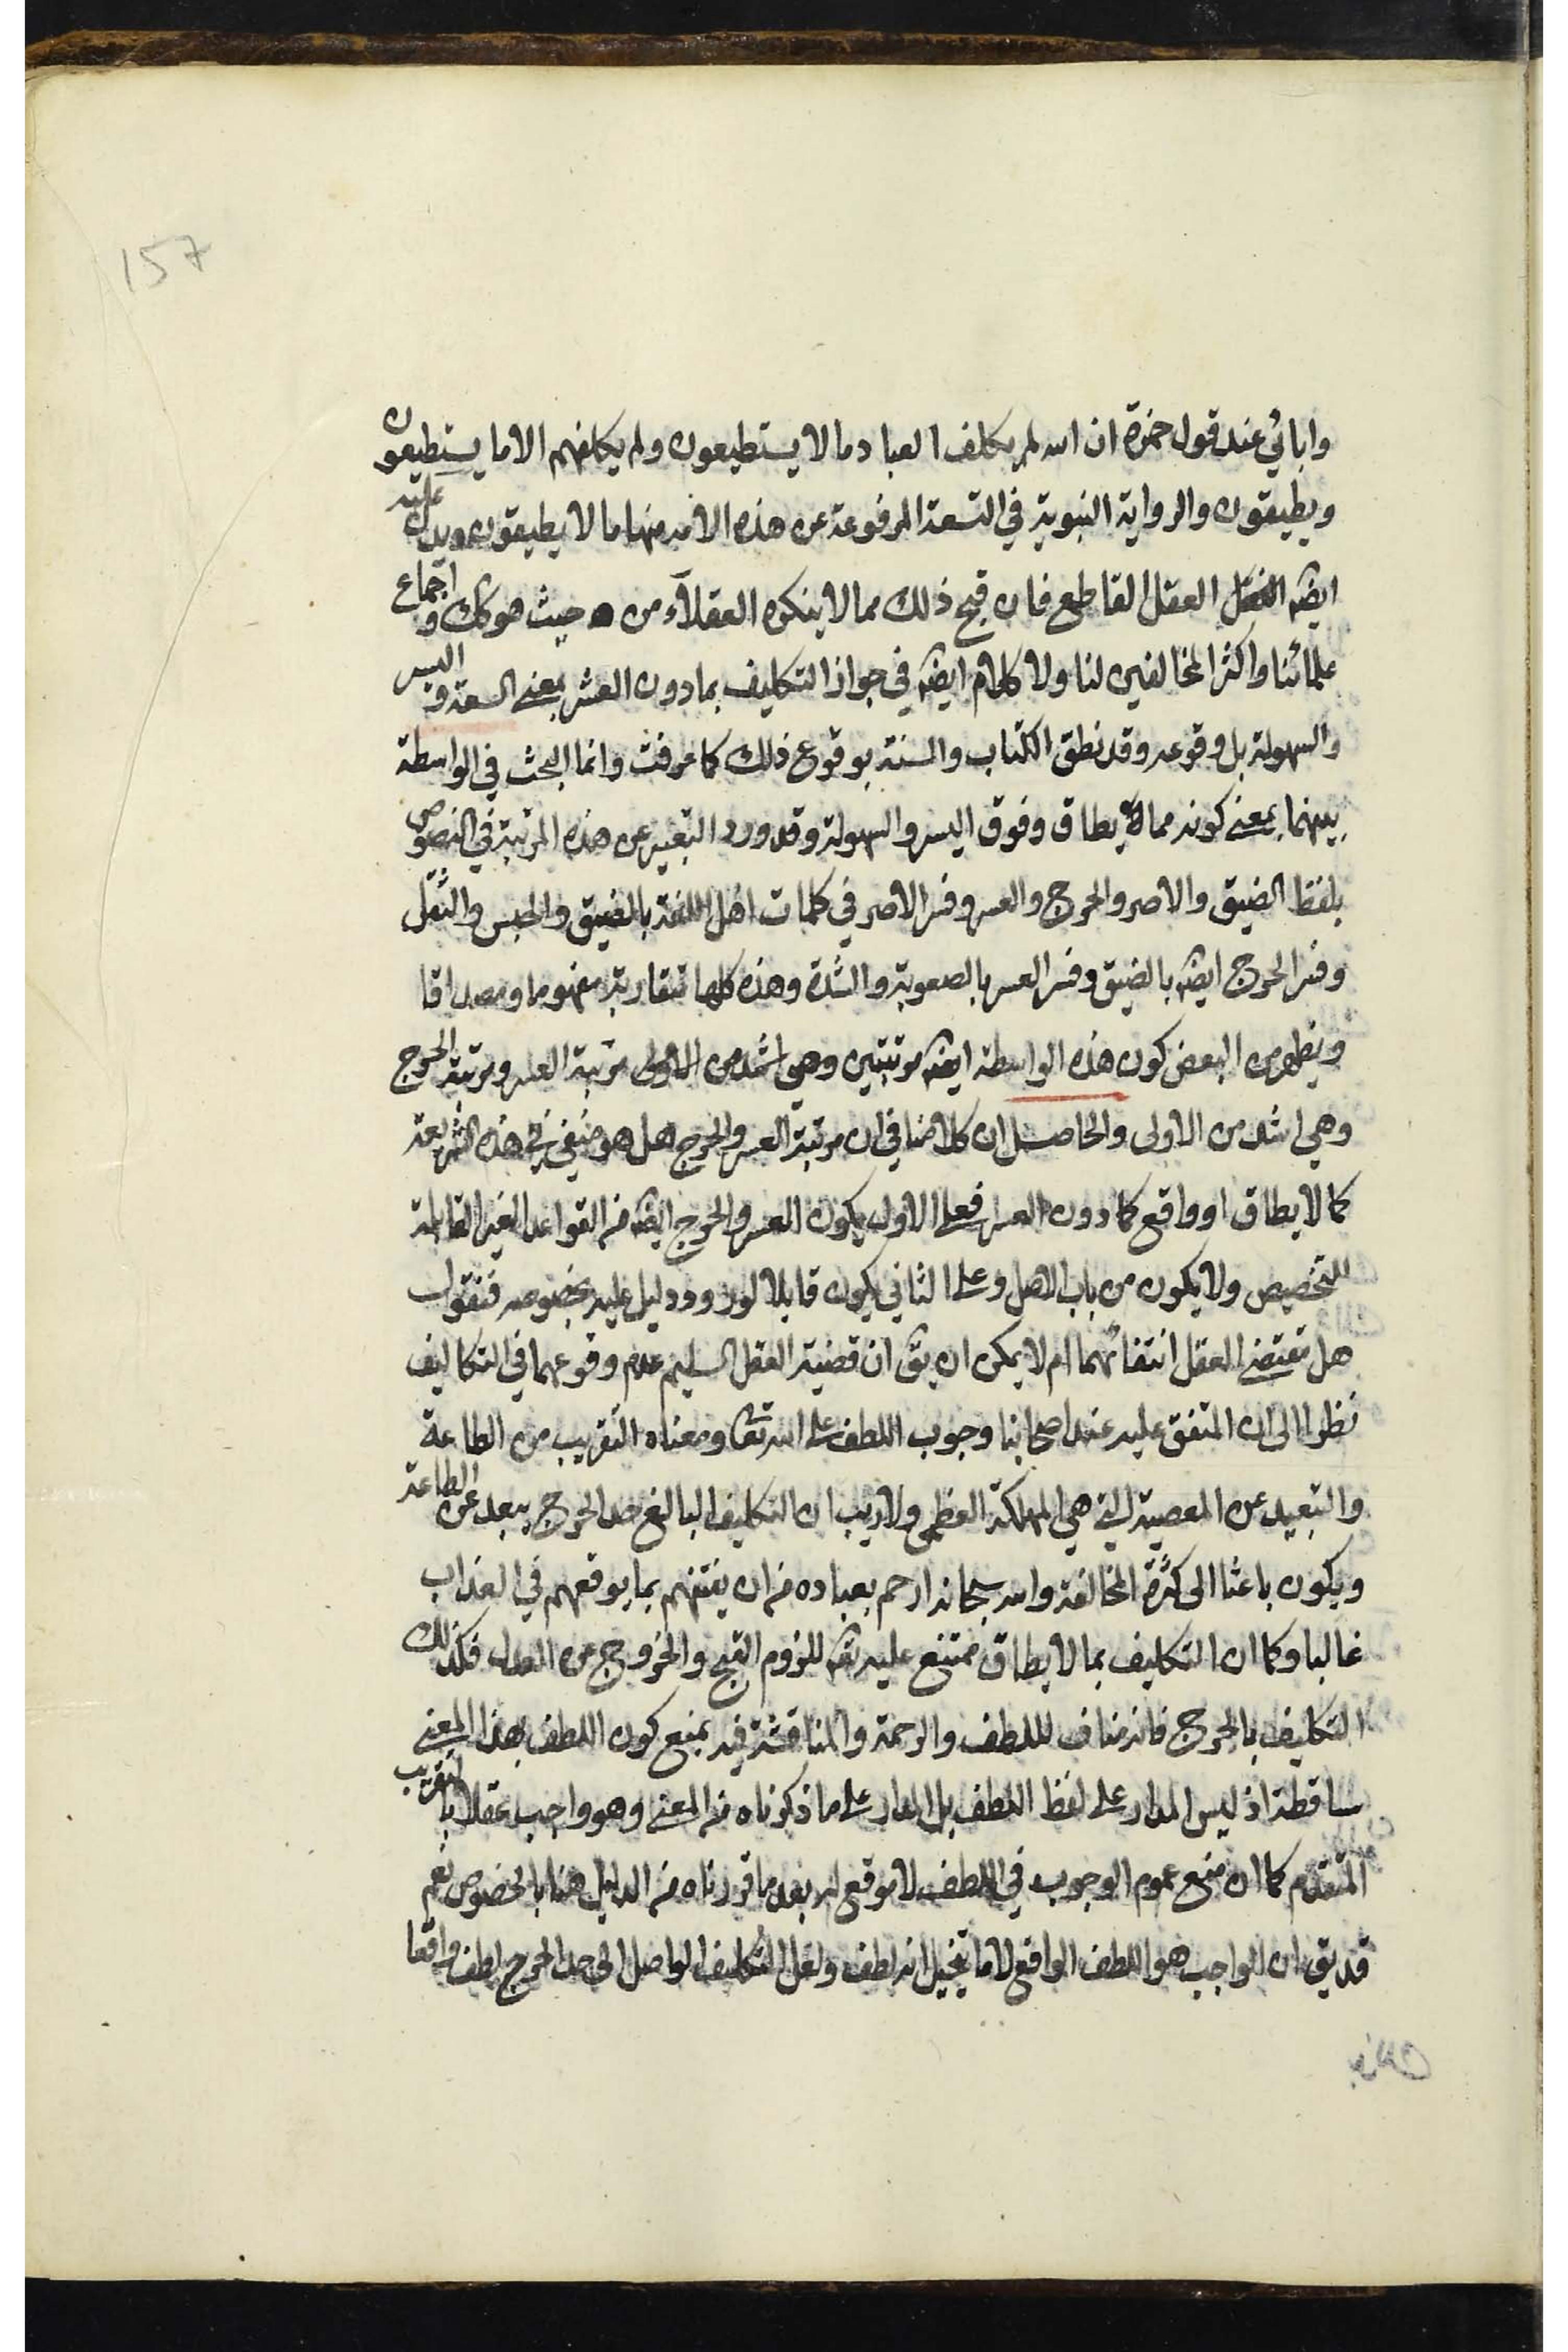 157
وابائي عند قول حمزة ان الله لم يكلف العباد ما لا يستطيعون ولم يكلفهم الا ما يستطيعون
ويطيقون والرواية النبوية في التسعة المرفوعة عن هذه الامة منها ما لا يطيقون ويدل عليه
ايضه العقل القاطع فان قبح ذلك مما لا ينكره العقلآء من حيث هو كك واجماع
علمائنا واكثر المخالفين لنا ولا كلام ايضه في جواز التكليف بما دون العسر بمعنى السعة واليسر
والسهولة بل وقوعه وقد نطق الكتاب والسنة بوقوع ذلك كما عرفت وانما البحث في الواسطة
بينهما بمعنى كونه مما يطاق وفوق اليسر والسهولة وقد ورد التعبير عن هذه المرتبة في النصوص
بلفظ الضيق والاصر والحرج والعسر وفسر الاصر في كلمات اهل اللغة بالضيق والحبس والثقل
وفسر الحرج ايضه بالضيق وفسر العسر بالصعوبة والشدة وهذه كلها متقاربة مفهوما ومصداقا
ويظهر من البعض كون هذه الواسطة ايضه مرتبتين وهي اشد من الاولى مرتبة العسر ومرتبة الحرج
وهي اشد من الاولى والحاصل ان كلامنا في ان مرتبة العسر والحرج هل هو منفي في هذه الشريعة
كما لا يطاق او واقع كما دون العسر فعلى الاول يكون العسر والحرج ايضه من القواعد الغير القابلة
للتخصيص ولا يكون من باب الاصل وعلى الثاني يكون قابلا لورود دليل عليه بخصوصه فنقول
هل تقتضى العقل انتفائهما ام لا يمكن ان يق ان قضية العقل السليم عدم وقوعهما في التكاليف
نظرا الى ان المتفق عليه عند اصحابنا وجوب اللطف على الله تعا ومعناه التقريب من الطاعة
والتبعيد عن المعصية التي هي المهلكة العظمى ولا ريب ان التكليف البالغ حد الحرج يبعد عن الطاعة
ويكون باعثا الى كثرة المخالفة والله سبحانه ارحم بعباده من ان يفتنهم بما يوقعهم في العذاب
غالبا وكما ان التكليف بما لا يطاق ممتنع عليه تعه للزوم القبح والخروج عن العدل فكذلك
التكليف بالحرج فانه مناف لللطف والرحمة والمناقشة فيه بمنع كون اللطف بهذا المعنى
ساقطة اذ ليس المدار على لفظ اللطف بل المدار على ما ذكرناه من المعنى وهو واجب عقلا بالتقريب
المتقدم كما ان منع عموم الوجوب في اللطف لا موقع له بعد ما قررناه من الدليل هنا بالخصوص نعم
قد يق ان الواجب هو اللطف الواقع لا ما يتخيل انه لطف ولعل التكليف الواصل الى حد الحرج لطف واقعا